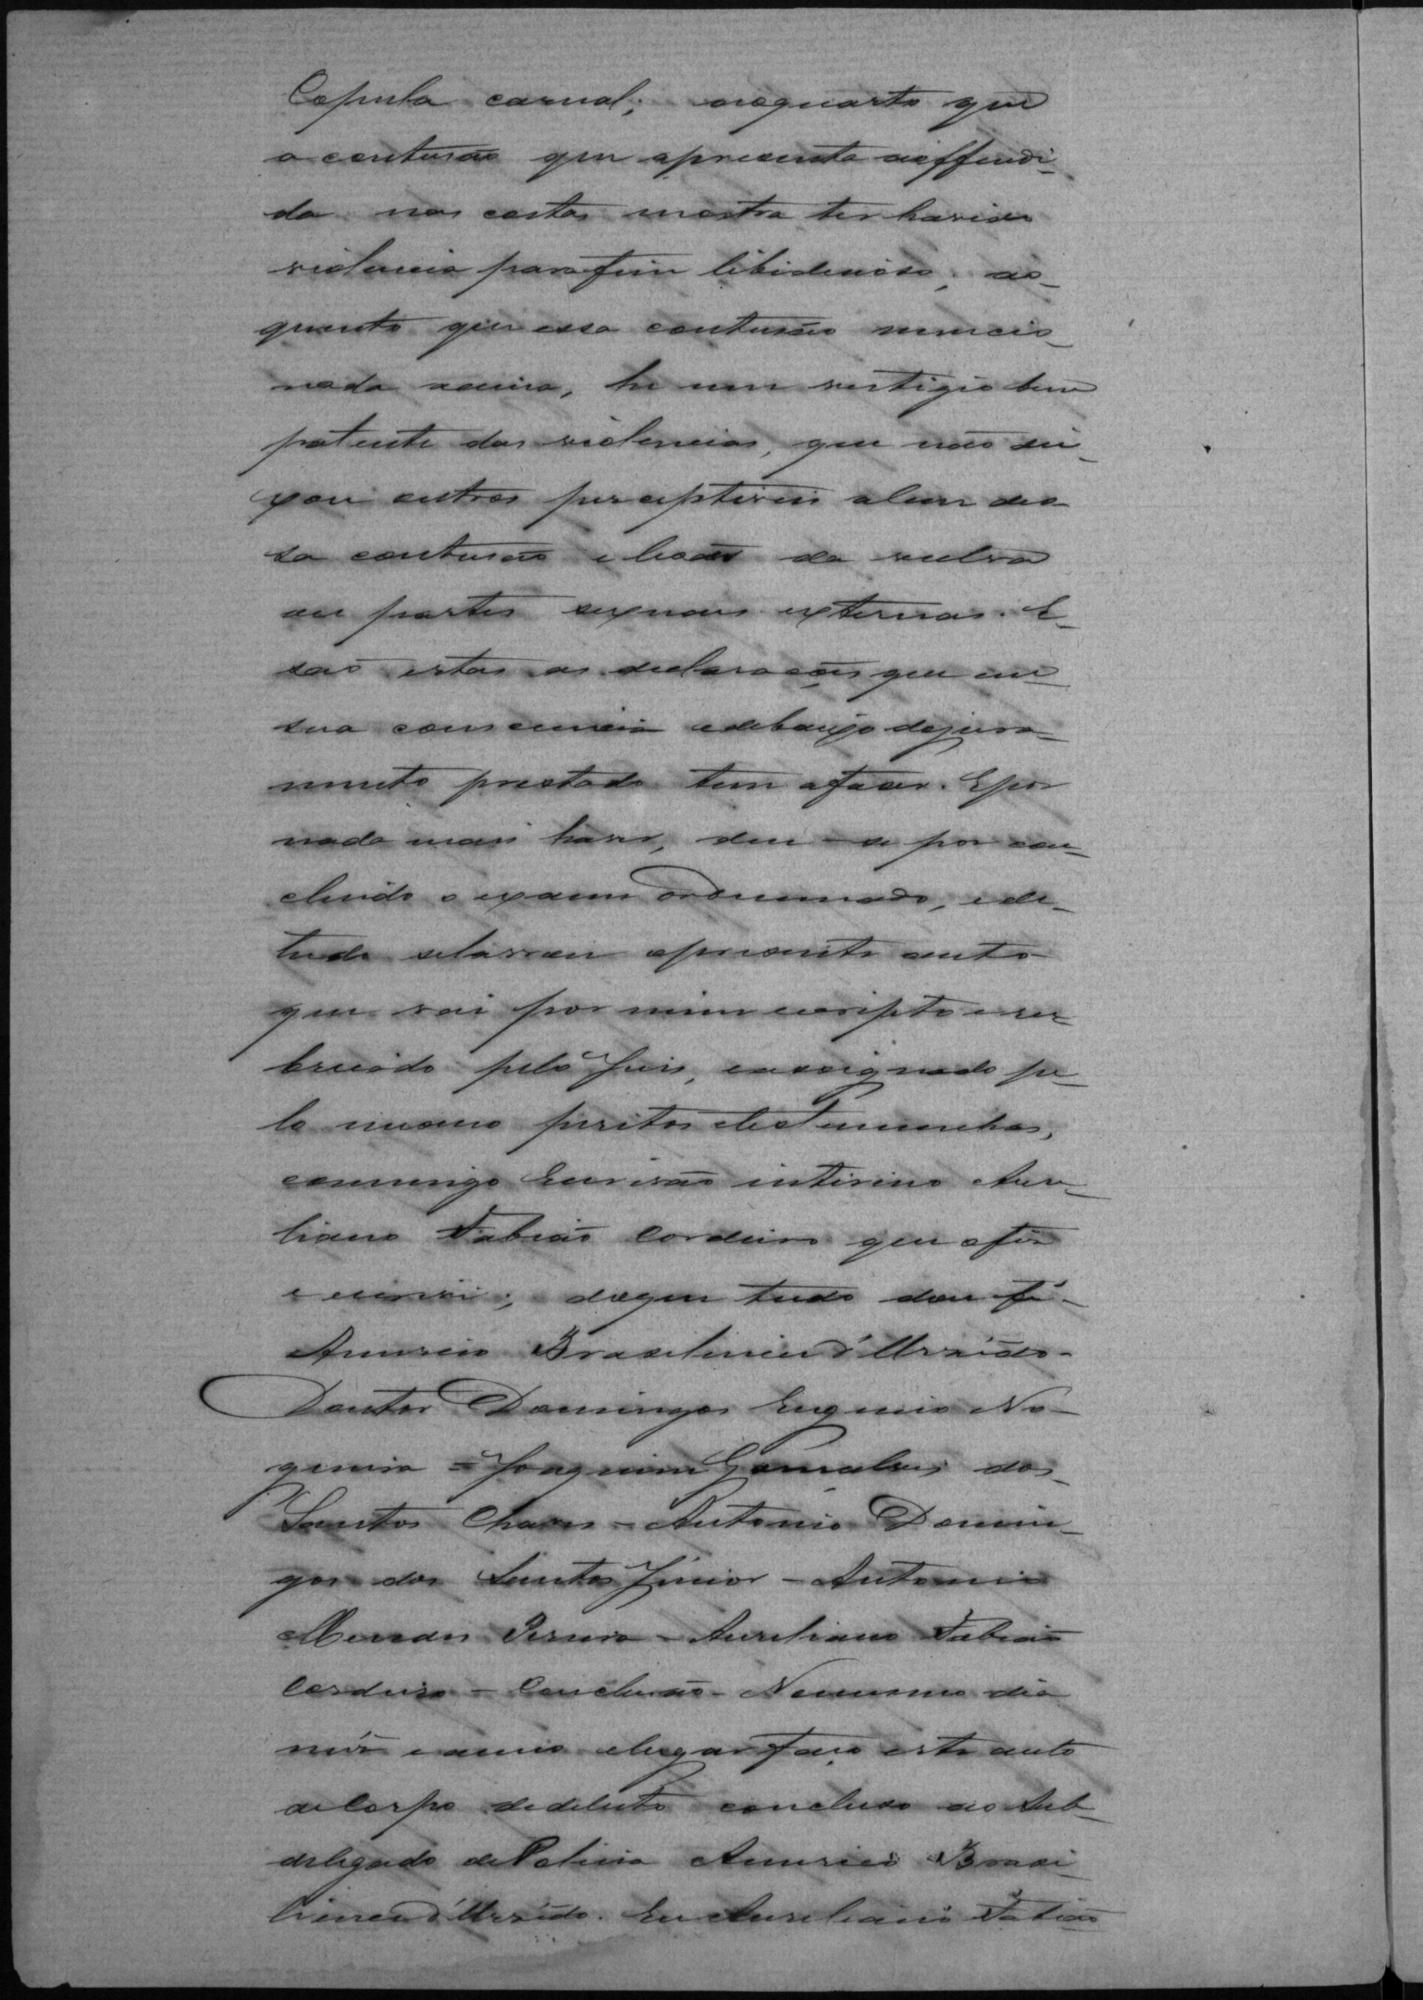 Copula carnal; aoquarto que
a contusão que apresenta aoffendi-
da nas costas mostra ter havido
violencia parafim libidinoso; ao-
quinto que essa contusão mencio-
nada acima, he um vestigio bem
patente das violencias, que não dei-
xou outros perceptiveis alem des-
sa contusão e lesões da vulva
ou partes sexuaes externas. E
são estas as declarações que em
sua consciencia edebaixo dejura-
mento prestado tem afazer. Epor
nada mais haver, deu-se por con-
cluido o exame ordennado, ede-
tudo selavrou apresente auto
que vai por mim escripto eru-
bricado pelo Juis, eassignado pe-
lo mesmo peritos etestemunhas,
commigo Escrivão interino Aure-
liano Fabião Cordeiro que ofiz
e escrevi; doque tudo dou fé-
Americo Brasilience d'
Doutor Domingos Eugenio No-
gueira = Joaquim Gonçalves dos
Santos Chaves - Antonio Domin-
gos dos Santos Júnior - Antonio
Mendes Pereira - Aureliano Fabião
Cordeiro - Conclusão - Nomesmo dia
mês eanno elugar faço este auto
deCorpo dedelicto concluso ao Sub-
delegado dePolicia Americo Brasi-
lience d' Eu Aureliano Fabião